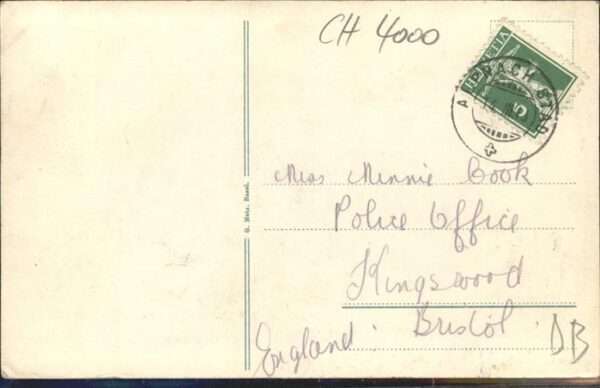 CH 4000
HELVETIA
5
ALPNACH STAD
Miss Minnie Cook
Police Office
Kingswood
Bristol.
England.
DB
G. Metz, Basel.